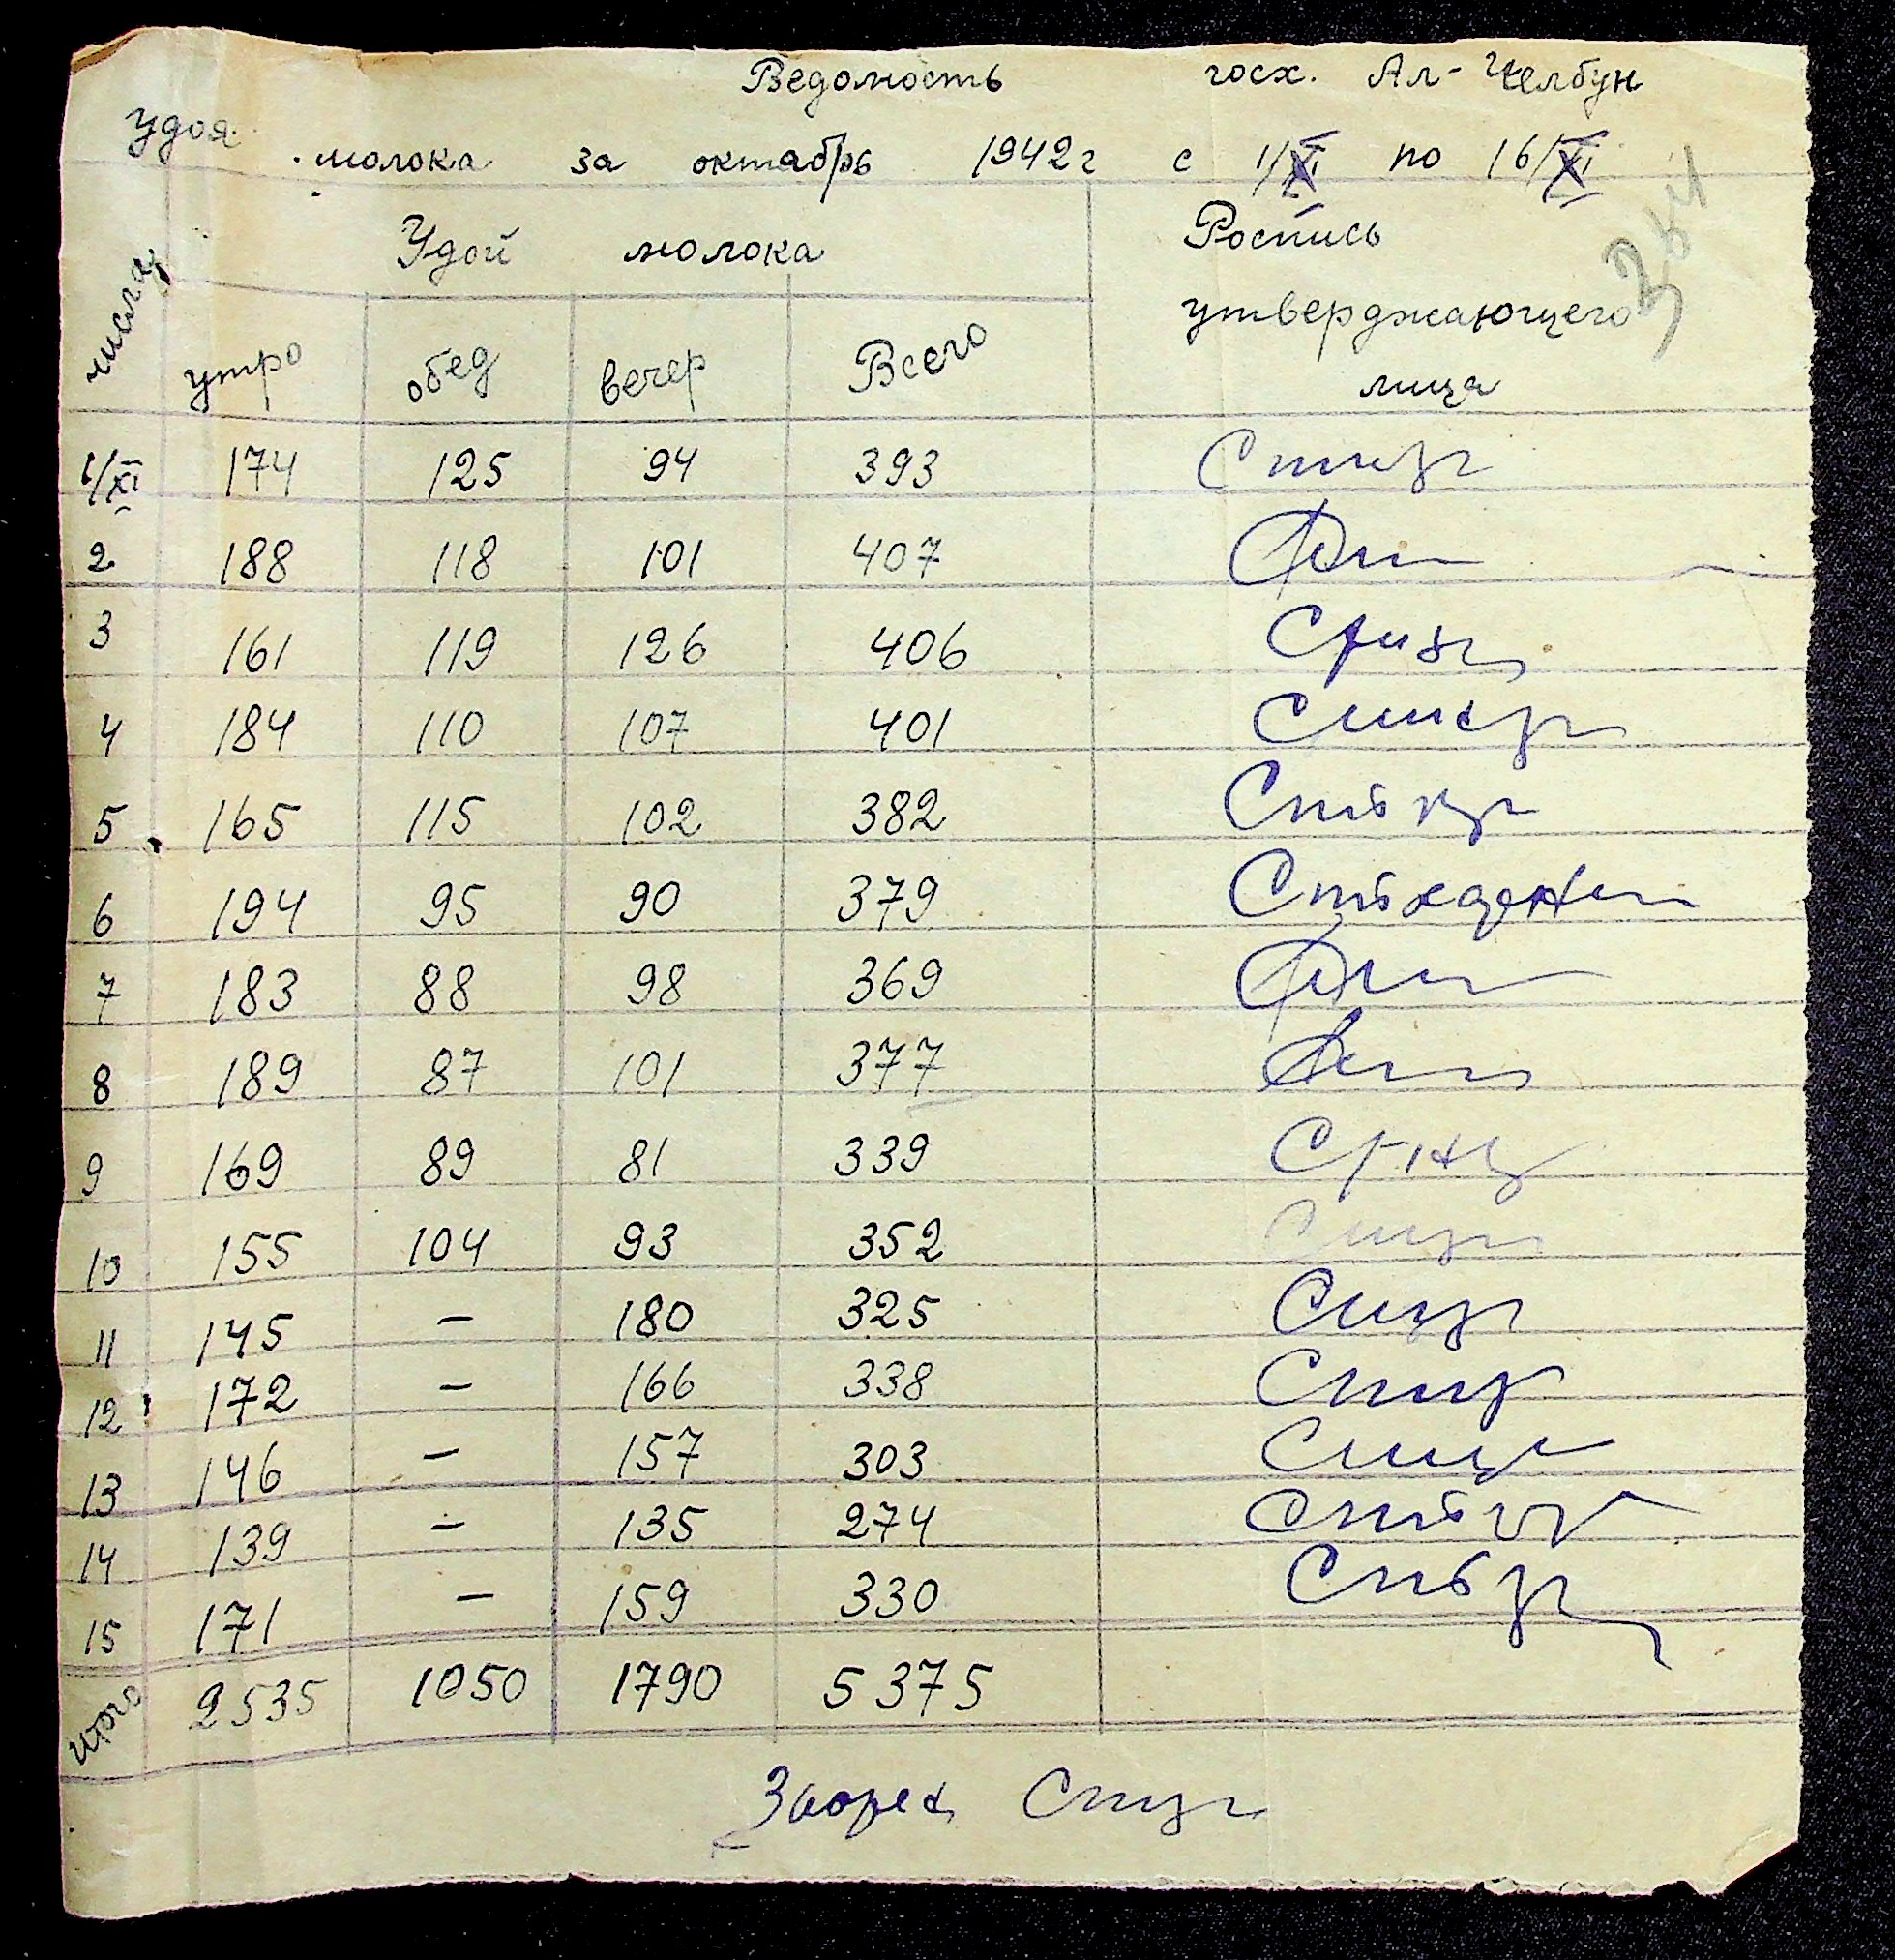 Ведомость госх. Ал-Челбун
удоя молока за октябрь 1942г с 1/XI по 16/XI
264
числа Удой молока Роспись
утверждающего
лица
утро обед вечер Всего
1/XI 174 125 94 393
2 188 118 101 407
3 161 119 126 406
4 184 110 107 401
5 165 115 102 382
6 194 95 90 379
7 183 88 98 369
8 189 87 101 377
9 169 89 81 339
10 155 104 93 352
11 145 - 180 325
12 172 - 166 338
13 146 - 157 303
14 139 - 135 274
15 171 - 159 330
итого 2535 1050 1790 5375